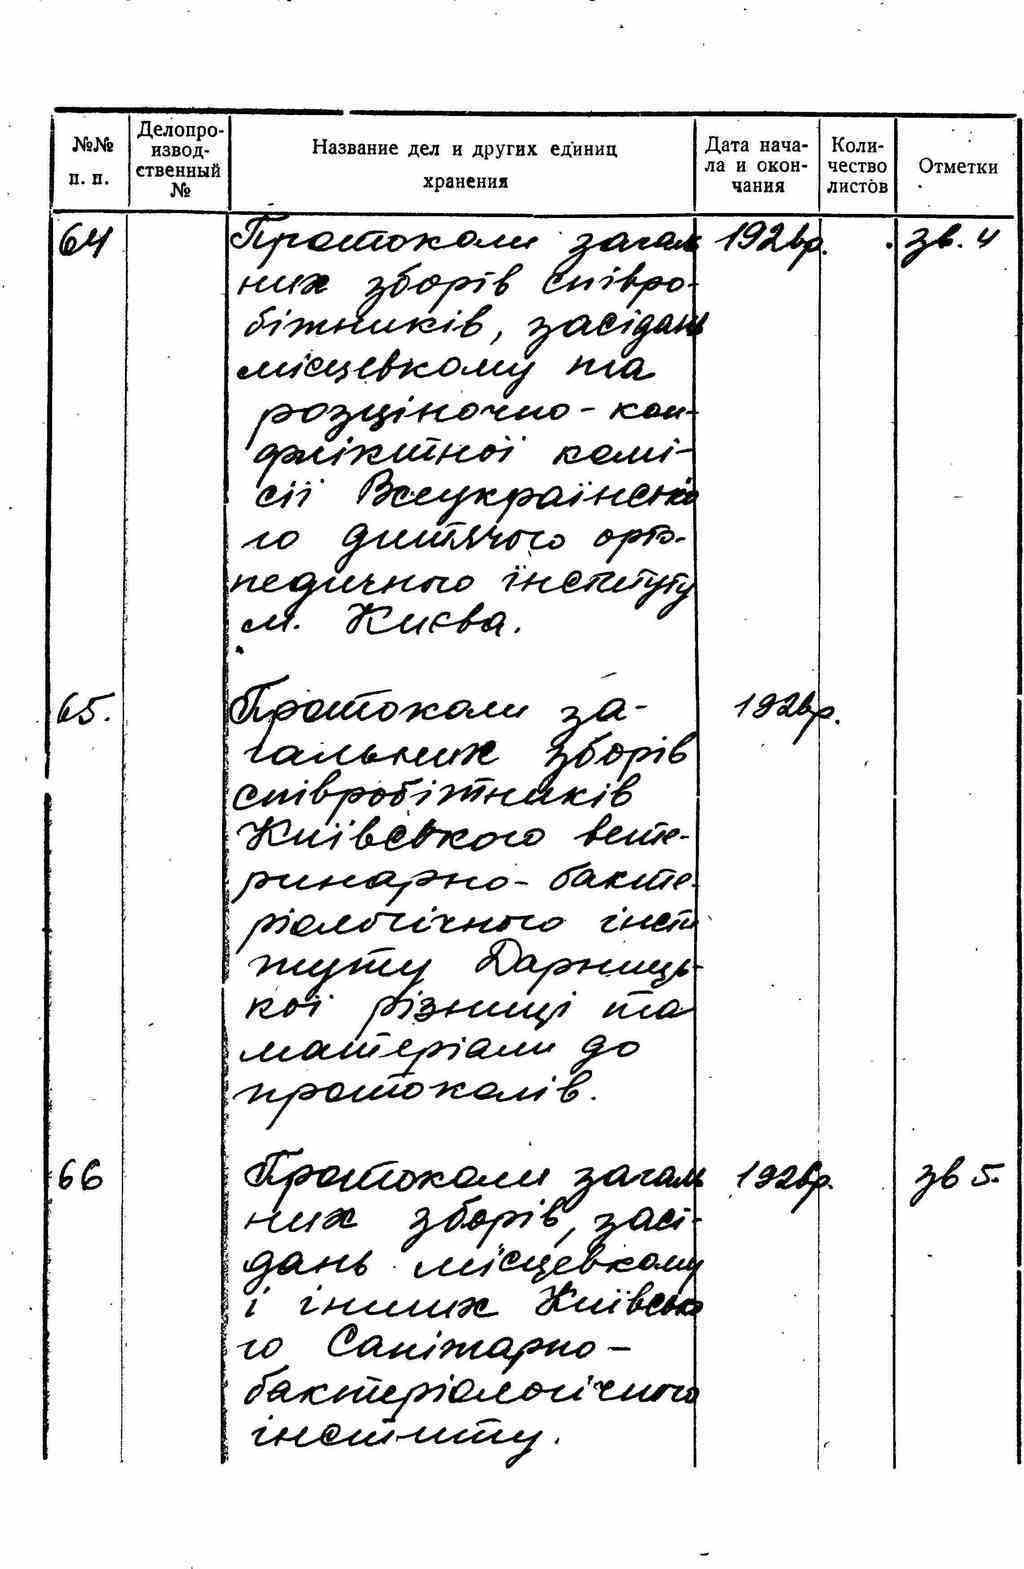 №№ п. п.
Делопро-
извод-
ственный
№
Название дел и других единиц
хранения
Дата нача-
ла и окон-
чания
Коли-
чество
листов
Отметки
64 Протоколи загаль 1926р. зв. 4
них зборів співро-
бітників, засідань
місцевкому та
розціночно-кон-
фліктної комі-
сії Всеукраїнсько
го дитячого орто-
педичного інституту
м. Києва.
65. Протоколи за- 1926р.
гальних зборів
співробітників
Київського вете-
ринарно-бакте-
ріологічного інсти
туту Дарниць-
кої різниці та
матеріали до
протоколів.
66 Протоколи загаль 1926р. зв 5.
них зборів, засі-
дань місцевкому
і інших Київсько
го Санітарно-
бактеріологічного
інституту.